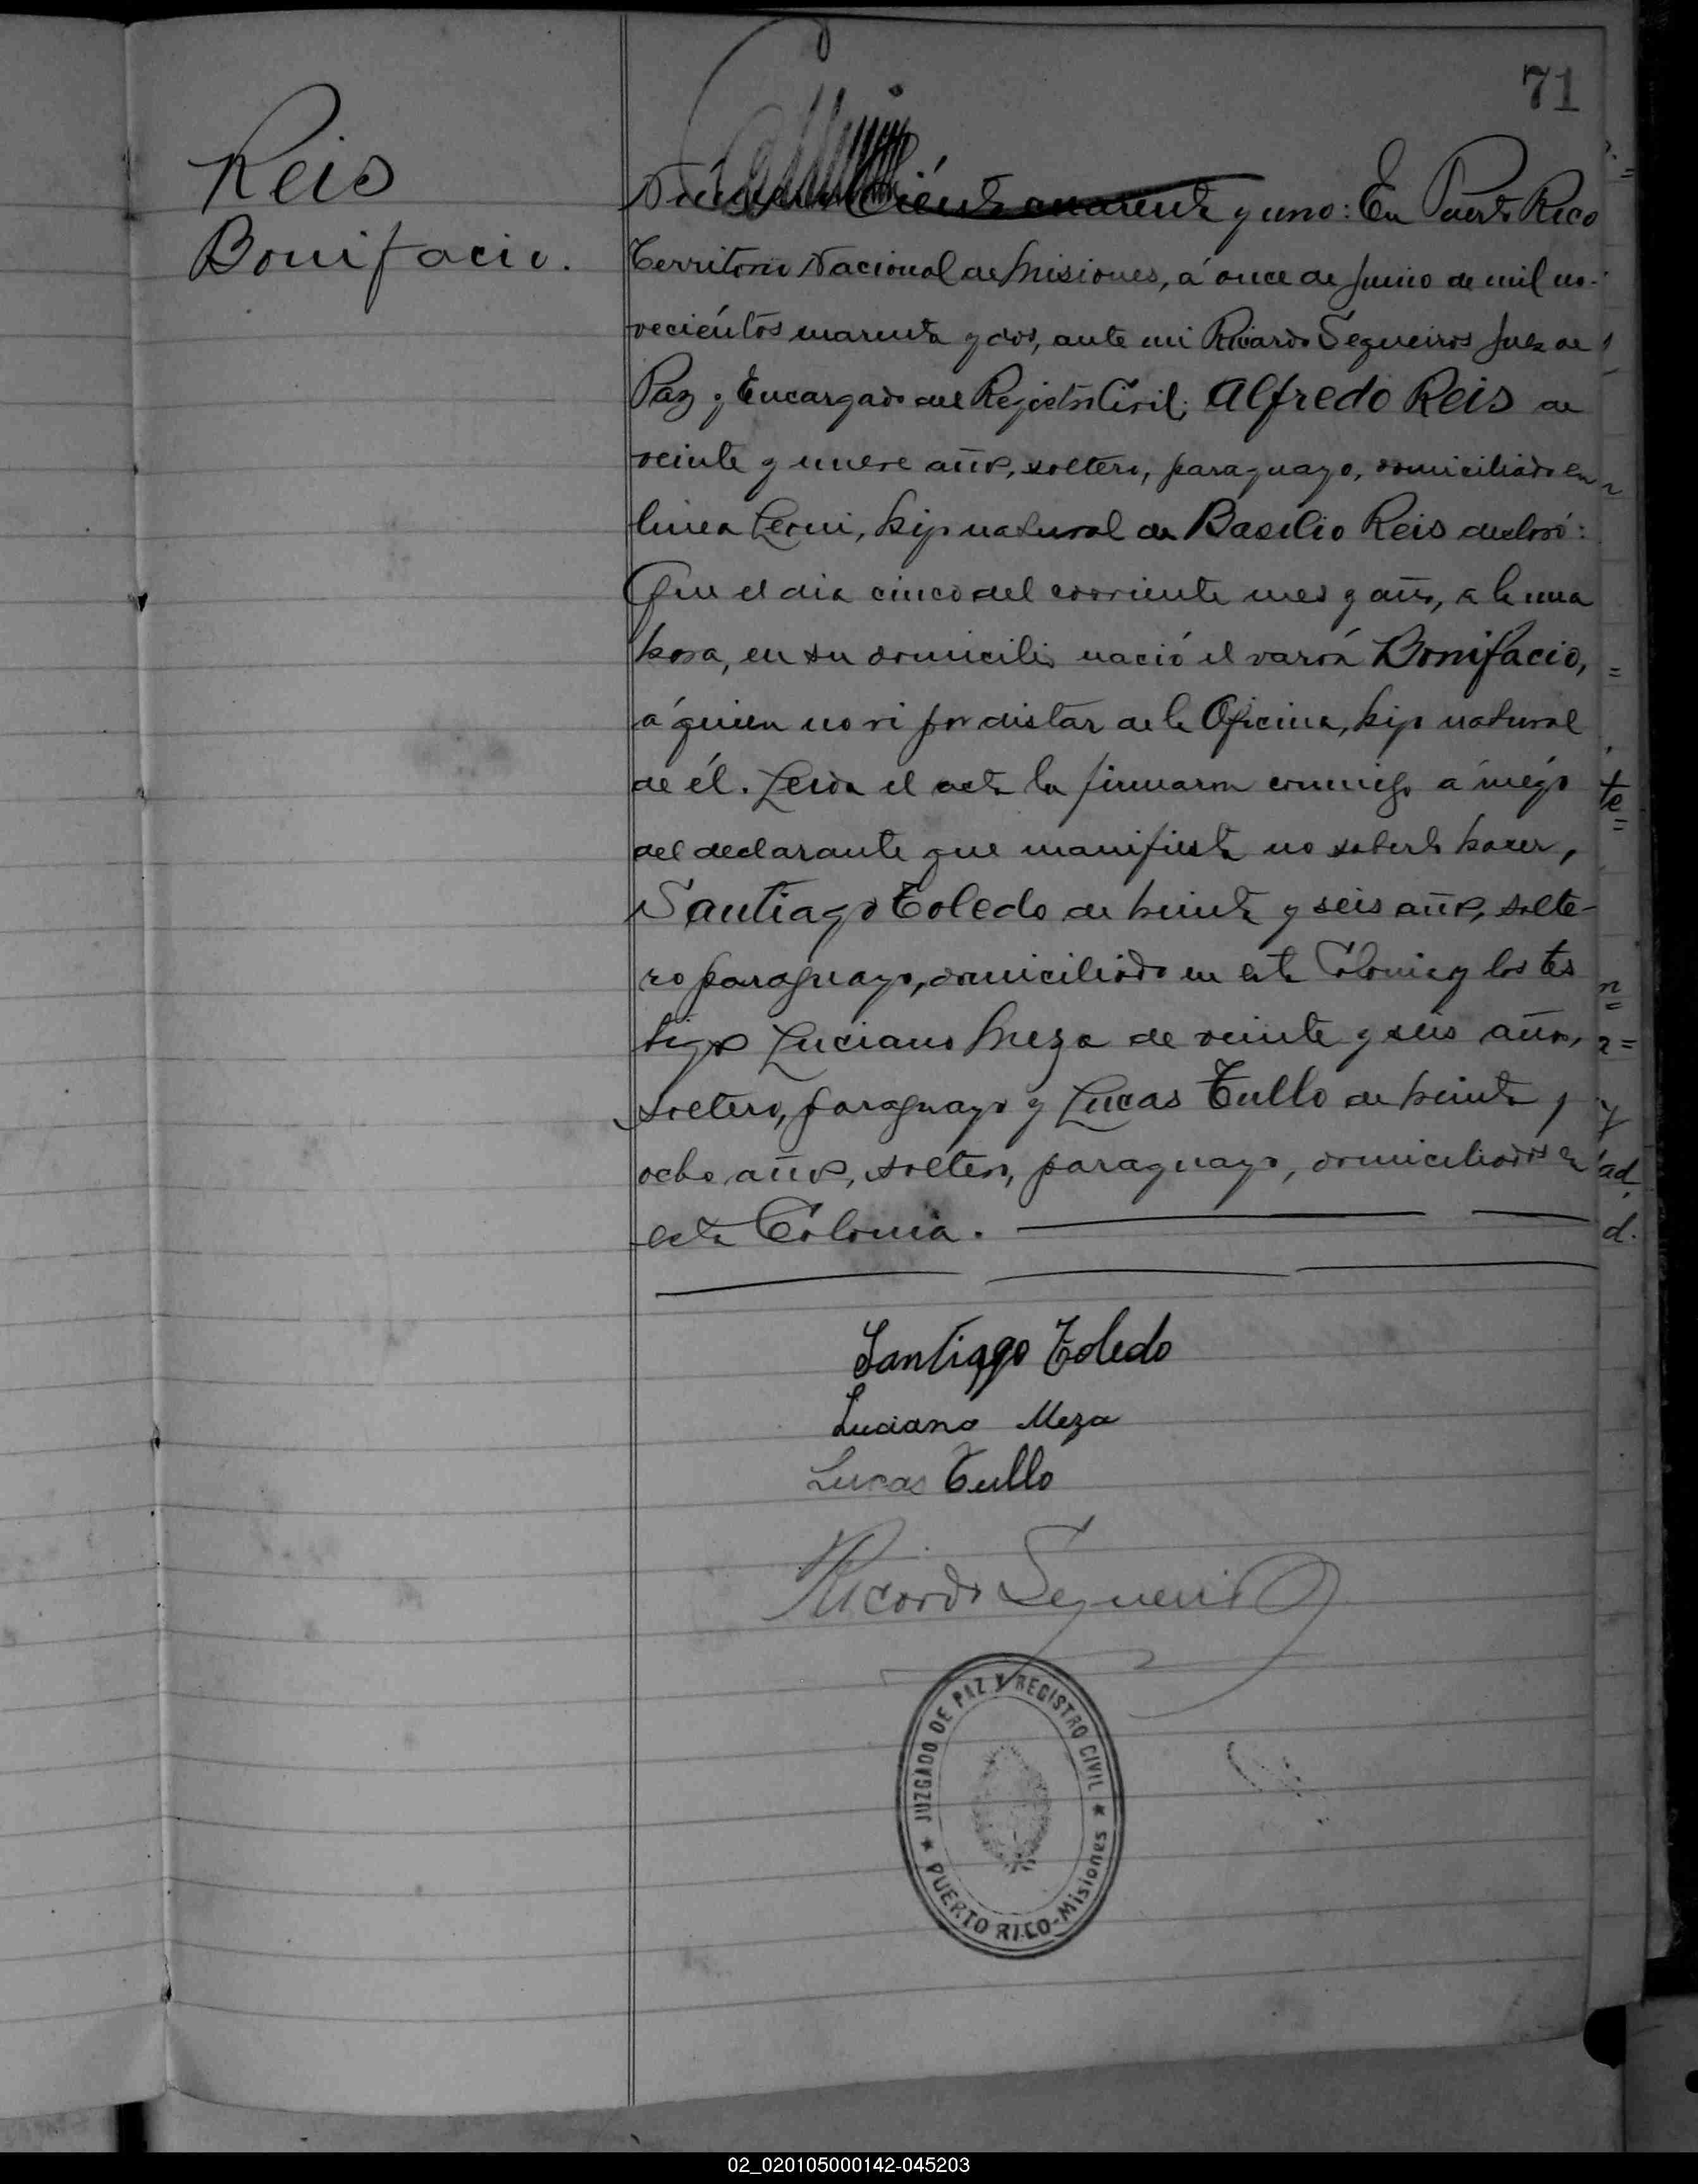 71
Reis
Bonifacio.
Número Ciento cuarenta y uno: En Puerto Rico
Territorio Nacional de Misiones, á once de Junio de mil no-
vecientos cuarenta y dos, ante mi Ricardo Sequeiros Juez de
Paz y Encargado del Registro Civil; Alfredo Reis de
veinte y nueve años, soltero, paraguayo, domiciliado en
linea, hijo natural de Basilio Reis declaró:
Que el dia cinco del corriente mes y año, a la una
hora, en su domicilio nació el varón Bonifacio,
á quien no vi por distar de la Oficina, hijo natural
de él. Leida el acta la firmaron conmigo a ruégo
del declarante que manifiesta no saberlo hacer,
Santiago Toledo de treinta y seis años, solte-
ro paraguayo, domiciliado en esta Colonia y los tes
tigos Luciano Meza de veinte y seis años,
soltero, paraguayo y Lucas Tullo de treinta y
ocho años, soltero, paraguayo, domiciliados en
esta Colonia.
Santiago Toledo
Luciano Meza
Lucas Tullo
Ricardo Sequeiros
JUZGADO DE PAZ Y REGISTRO CIVIL
PUERTO RICO-Misiones
02_020105000142-045203